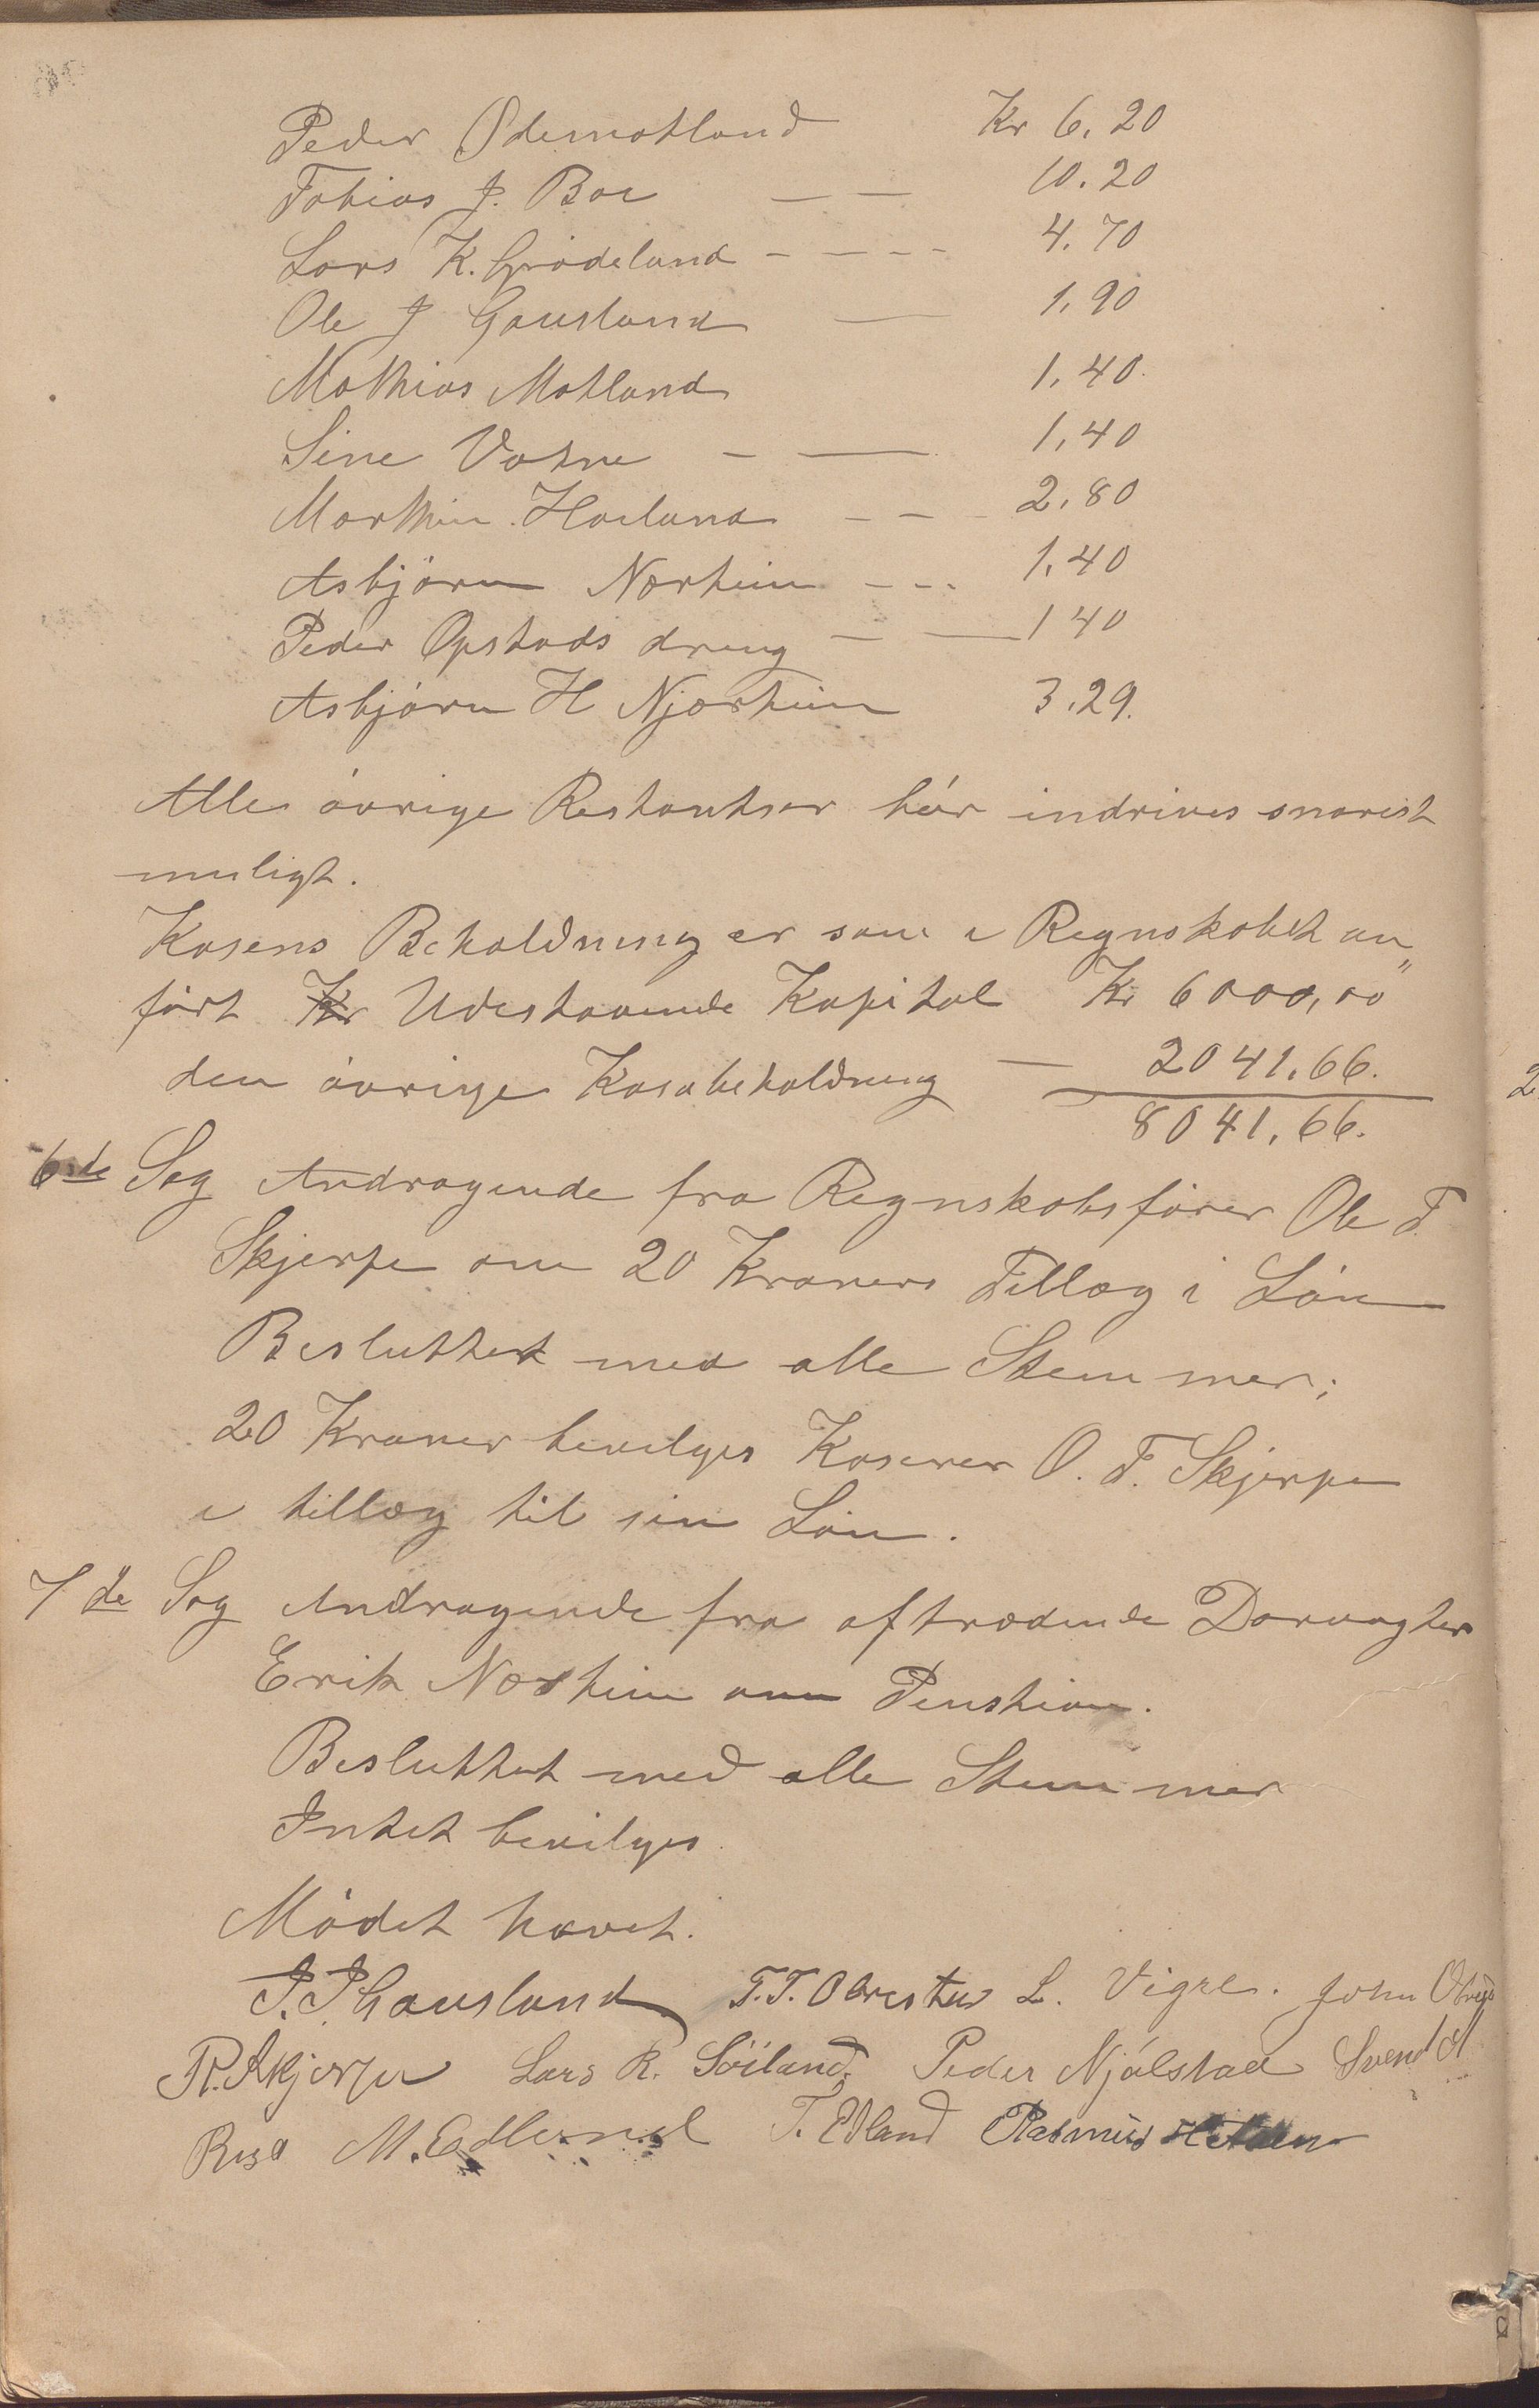 Peder Ødemotland Kr 6,20
Tobias J. Boe — — 10.20
Lars K. Grødeland - - - - 4.70
Ole J Gausland — 1,90
Mathias Motland 1,40.
Sine Vatne - — 1,40
Marthin Haaland - - - 2,80
Asbjørn Nærheim - - - 1,40
Peder Opstads dreng — — 1 40
Asbjørn H Njærheim 3,29.
Alle øvrige Restantser bør indrives snarest
muligt.
Kasens Beholdning er som i Regnskabet an„
ført Kr Udestaaende Kapital Kr 6000,00
den øvrige Kasabeholdning — 2041,66.
8041,66.
6te Sag Andragende fra Regnskabsfører Ole T.
Skjerpe om 20 Kroners Tillæg i Løn
Besluttet med alle Stemmer;
20 Kroner bevilges Kaserer O. T. Skjerpe
i tillæg til sin Løn.
7de Sag Andragende fra aftrædende Dørvagter
Erik Nærheim om Penstion.
Besluttet med alle Stemmer
Intet bevilges.
Mødet hævet.
J. J Gausland T. T. Obrestad L. Vigre. John Obrest
R. Skjerpe Lars R. Söiland. Peder Njølstad Svend A
Risa M. Edland T. Edland Rasmus